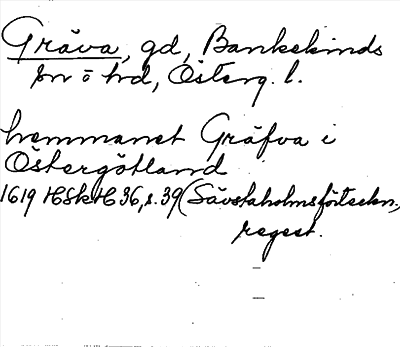 Gräva, gd, Bankekinds
sn o hd, Österg. l.
hemmanet Gräfva i
Östergötland
1619 HSkH 36, s. 39 (Sävstaholmsförteckn.,
regest.